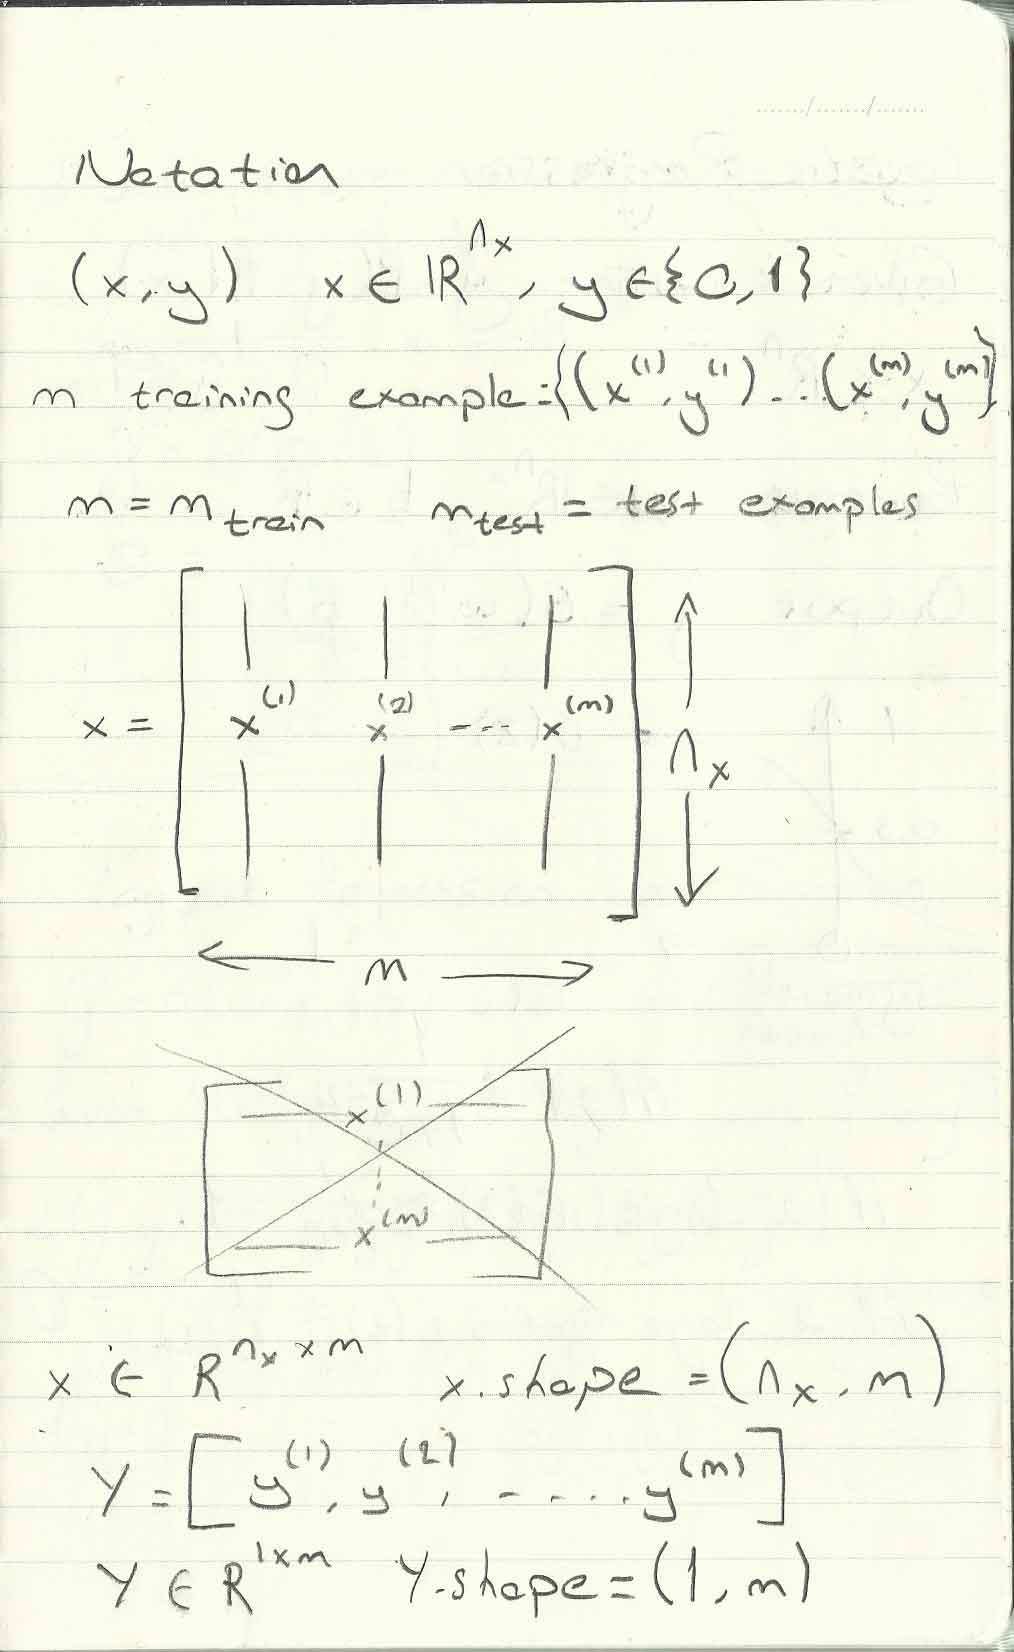 Notation
(x, y) x ∈ ℝ^{n_x}, y ∈ {0, 1}
m training example = {(x^{(1)}, y^{(1}) ... (x^{(m)}, y^{(m)}}
m = m_{train} m_{test} = test examples
x = [ x^{(1)} x^{(2)} ---- x^{(m)} ] n_x
m
x^{(1)}
x^{(m)}
x ∈ R^{n_x × m} x.shape = (n_x, m)
Y = [ y^{(1)}, y^{(2)}, - .... y^{(m)} ]
Y ∈ R^{1×m} Y.shape = (1, m)